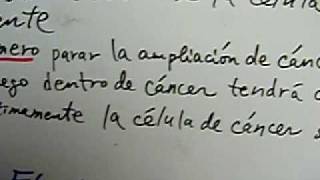 la célula
ente
mero parar la ampliación de cánc
ego dentro de cáncer tendrá
timamente la célula de cáncer